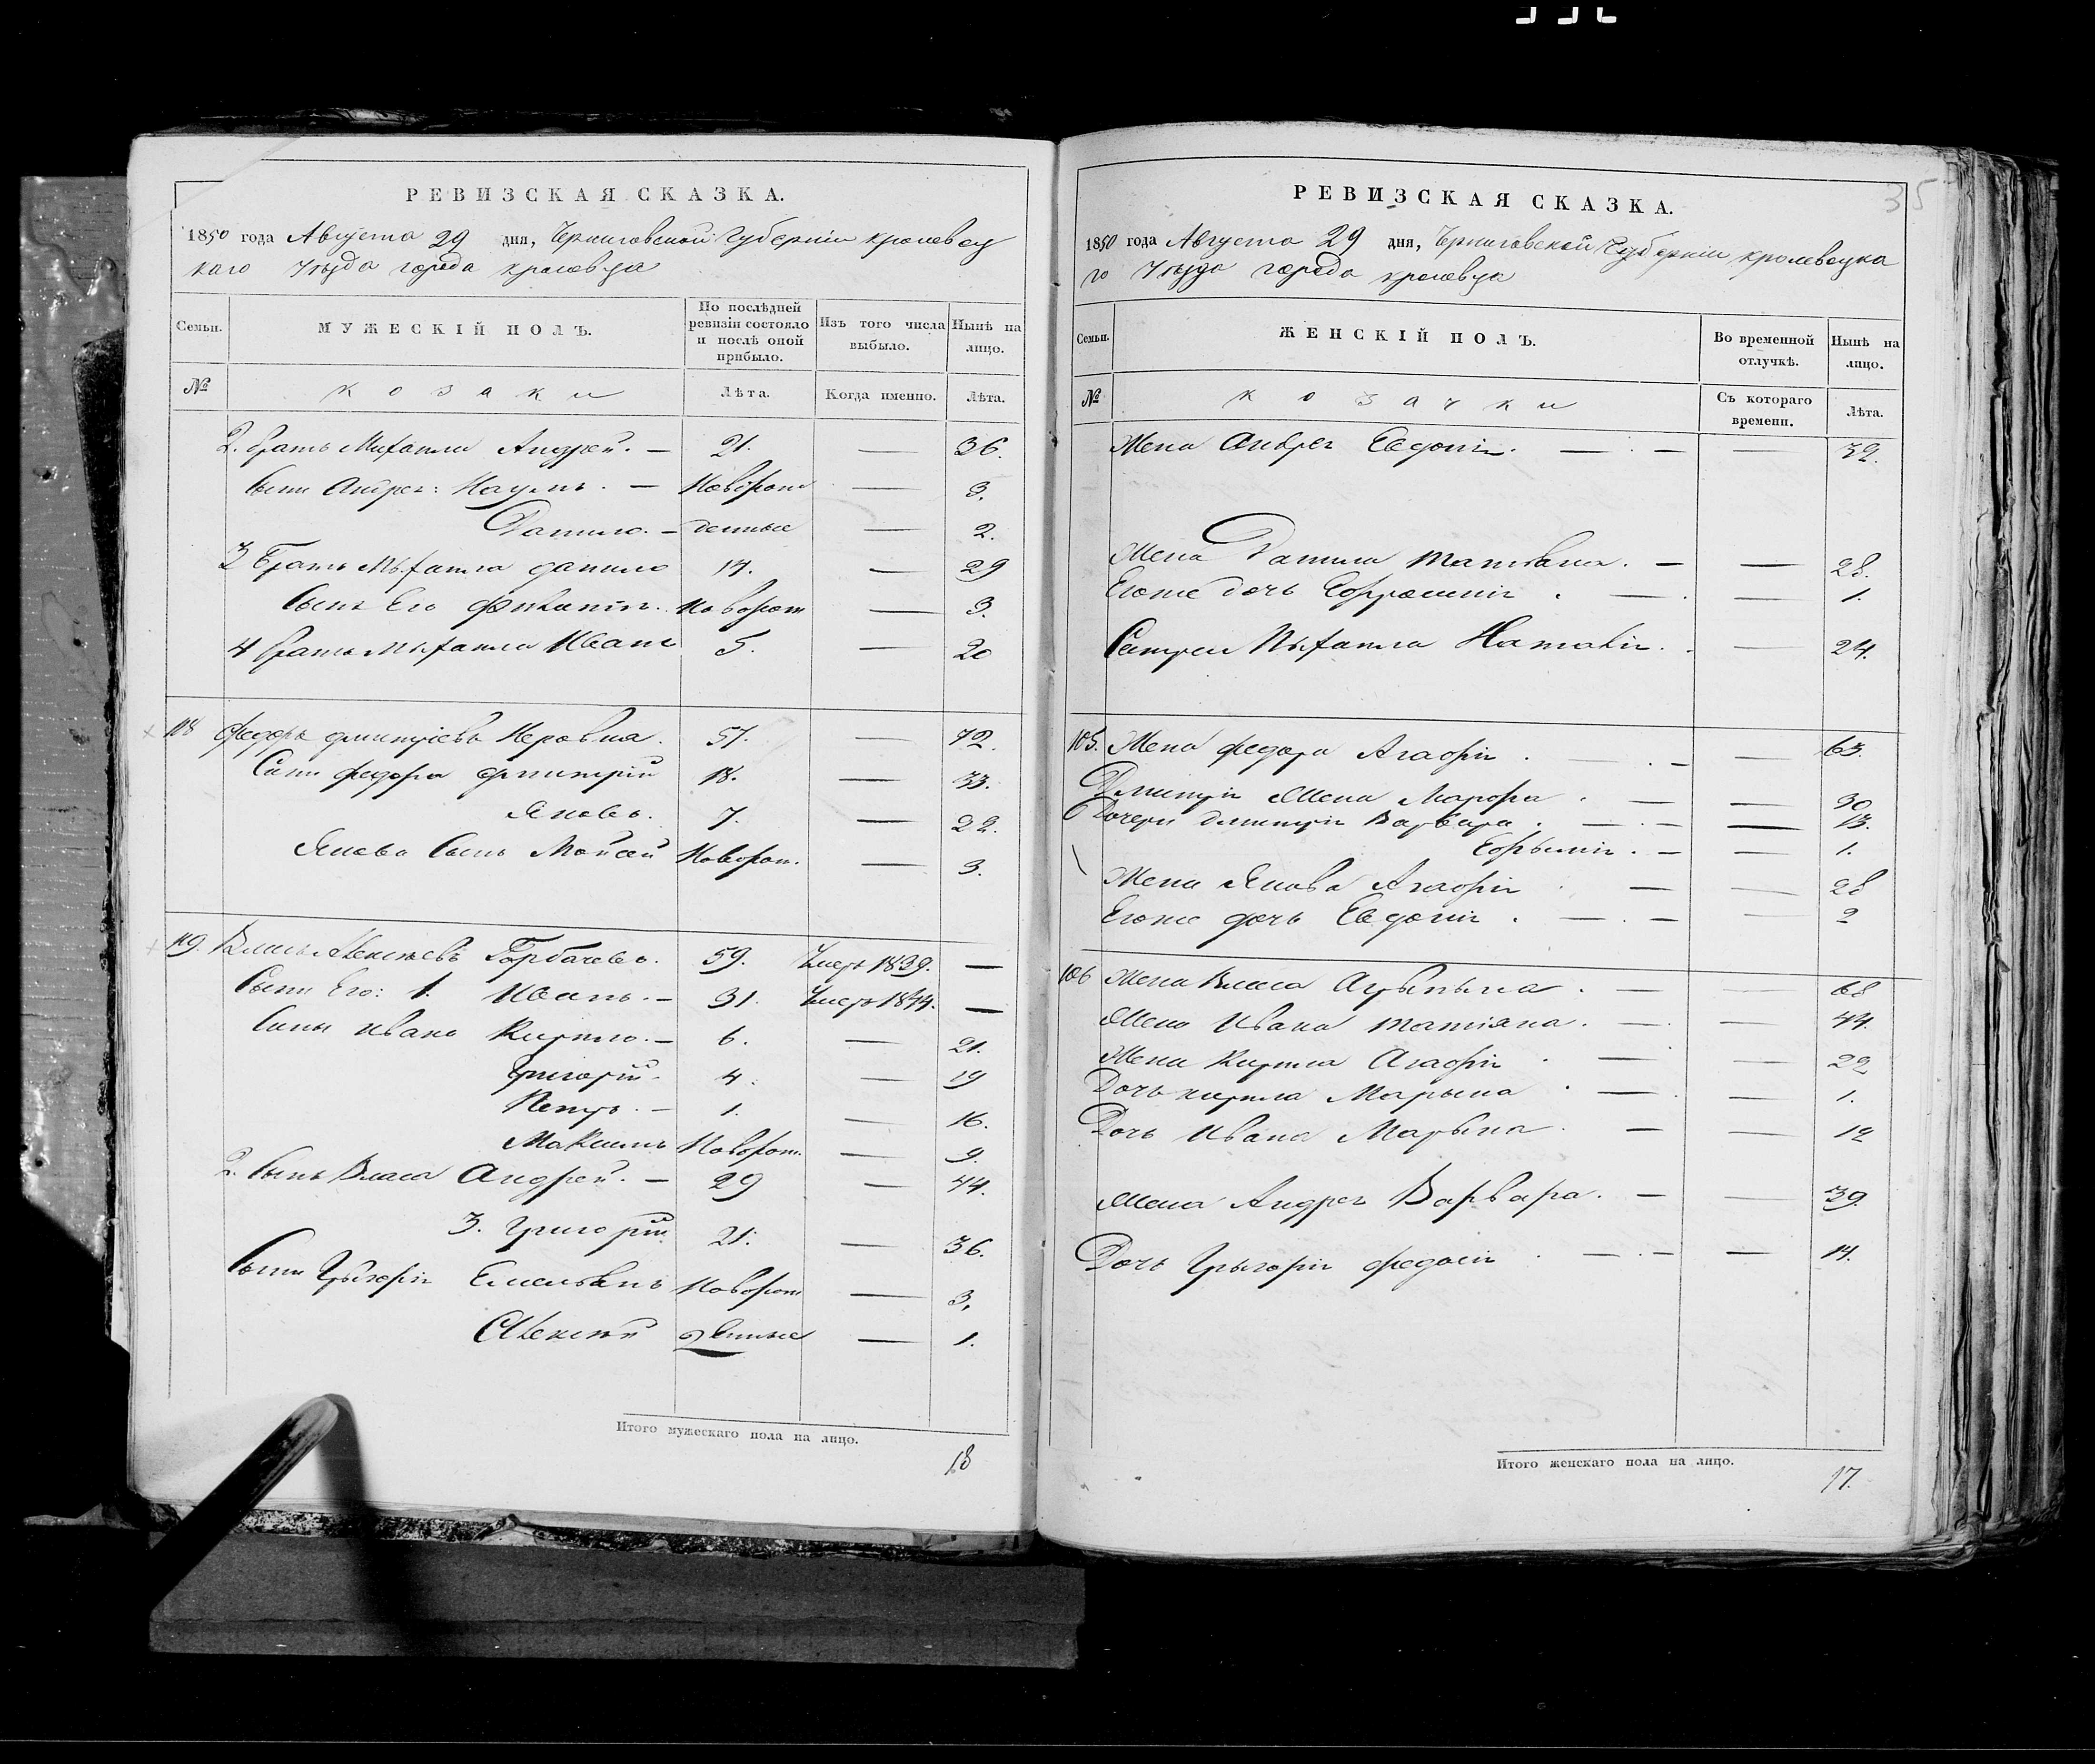 РЕВИЗСКАЯ СКАЗКА.
1850 года Августа 29 дня, Черниговской Губернии кролевец
каго уезда города кролевца
Семьи. МУЖЕСКІЙ ПОЛЪ. По послѣдней ревизіи состояло и послѣ оной прибыло. Изъ того числа выбыло. Нынѣ на лицо.
№ козаки Лѣта. Когда именно. Лѣта.
2. братъ Михайла Андрей. — 21. — 36.
сыны Андрея: Наумъ. — Новорож — 3.
Данило. — денные — 2.
3 Братъ Михайла данило 14. — 29
сынъ Его — Новорож — 3.
4 братъ Михайла Иванъ 5. — 20
118 Федоръ дмитріевъ 57. — 72.
Сыны федора дмитрій 18. — 33.
Яковъ. 7. — 22.
Якова сынъ Мойсей Новорож. — 3.
119. Власъ Алексѣевъ Горбачевъ. 59. Умеръ 1839. —
Сыны Его: 1. Иванъ. — 31. Умеръ 1844. —
Сыны Ивана Кирило. — 6. — 21.
Григорій. 4. — 19
Петръ. — 1. — 16.
Максимъ Новорож. — 9.
2. Сынъ Власа Андрей. — 29 — 44.
3. Григорій 21. — 36.
Сыны Григорія Емельянъ Новорож — 3,
Алексѣй денные — 1.
Итого мужескаго пола на лицо.
18
35
РЕВИЗСКАЯ СКАЗКА.
1850 года Августа 29 дня, Черниговской Губерніи кролевецка
го уезда города кролевца
Семьи. ЖЕНСКІЙ ПОЛЪ. Во временной отлучкѣ. Нынѣ на лицо.
№ козачки Съ котораго времени. Лѣта.
Жена Андрея Евдокія. — . — — 32.
Жена Данила Татіяна. — — 28.
Егоже дочь Ефросинія . — . — 1.
Сестра Михайла Наталія. . — 24.
105. Жена федора Агафія . — . — — 63.
Дмитрія Жена Марфа . — — 30
Дочери дмитрія Варвара . — . — — 13.
Ефимія . — — 1.
Жена Якова Агафія . — — 28
Егоже дочь Евдокія . — . — — 2
106 Жена Власа . — — 68
Жена Ивана татіяна. — . — 44.
Жена Кирила Агафія . — — 22
Дочь кирила Марына . — . — 1.
Дочь Ивана Марына . — — 12
Жена Андрея Варвара. — — 39.
Дочь Григорія федосія . — . — — 14.
Итого женскаго пола на лицо.
17.